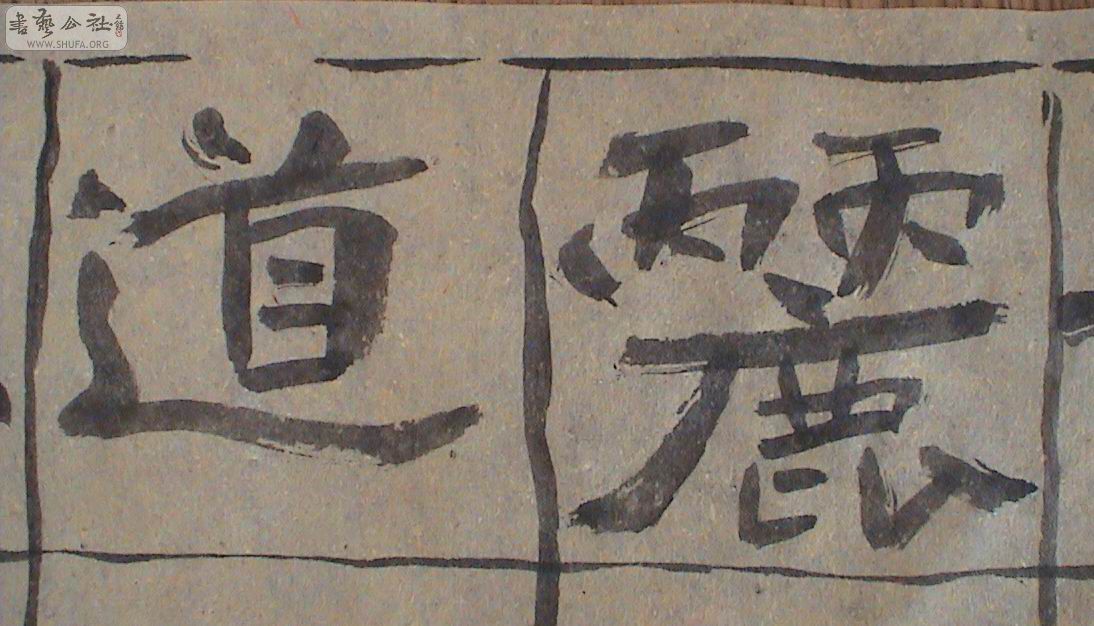 書藝公社
WWW.SHUFA.ORG
道麗